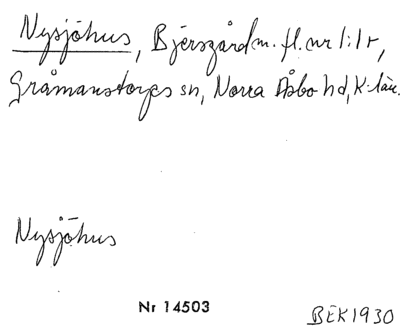 Nysjöhus, Bjersgård m. fl. nr 1:1 r,
Gråmanstorps sn, Norra Åsbo hd, K-län.
Nysjöhus
Nr 14503
BEK1930